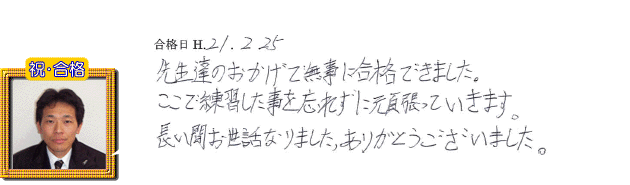 合格日 H.21.2.25
祝・合格
先生達のおかげで無事に合格できました。
ここで練習した事を忘れずに頑張っていきます。
長い間お世話なりました,ありがとうございました。